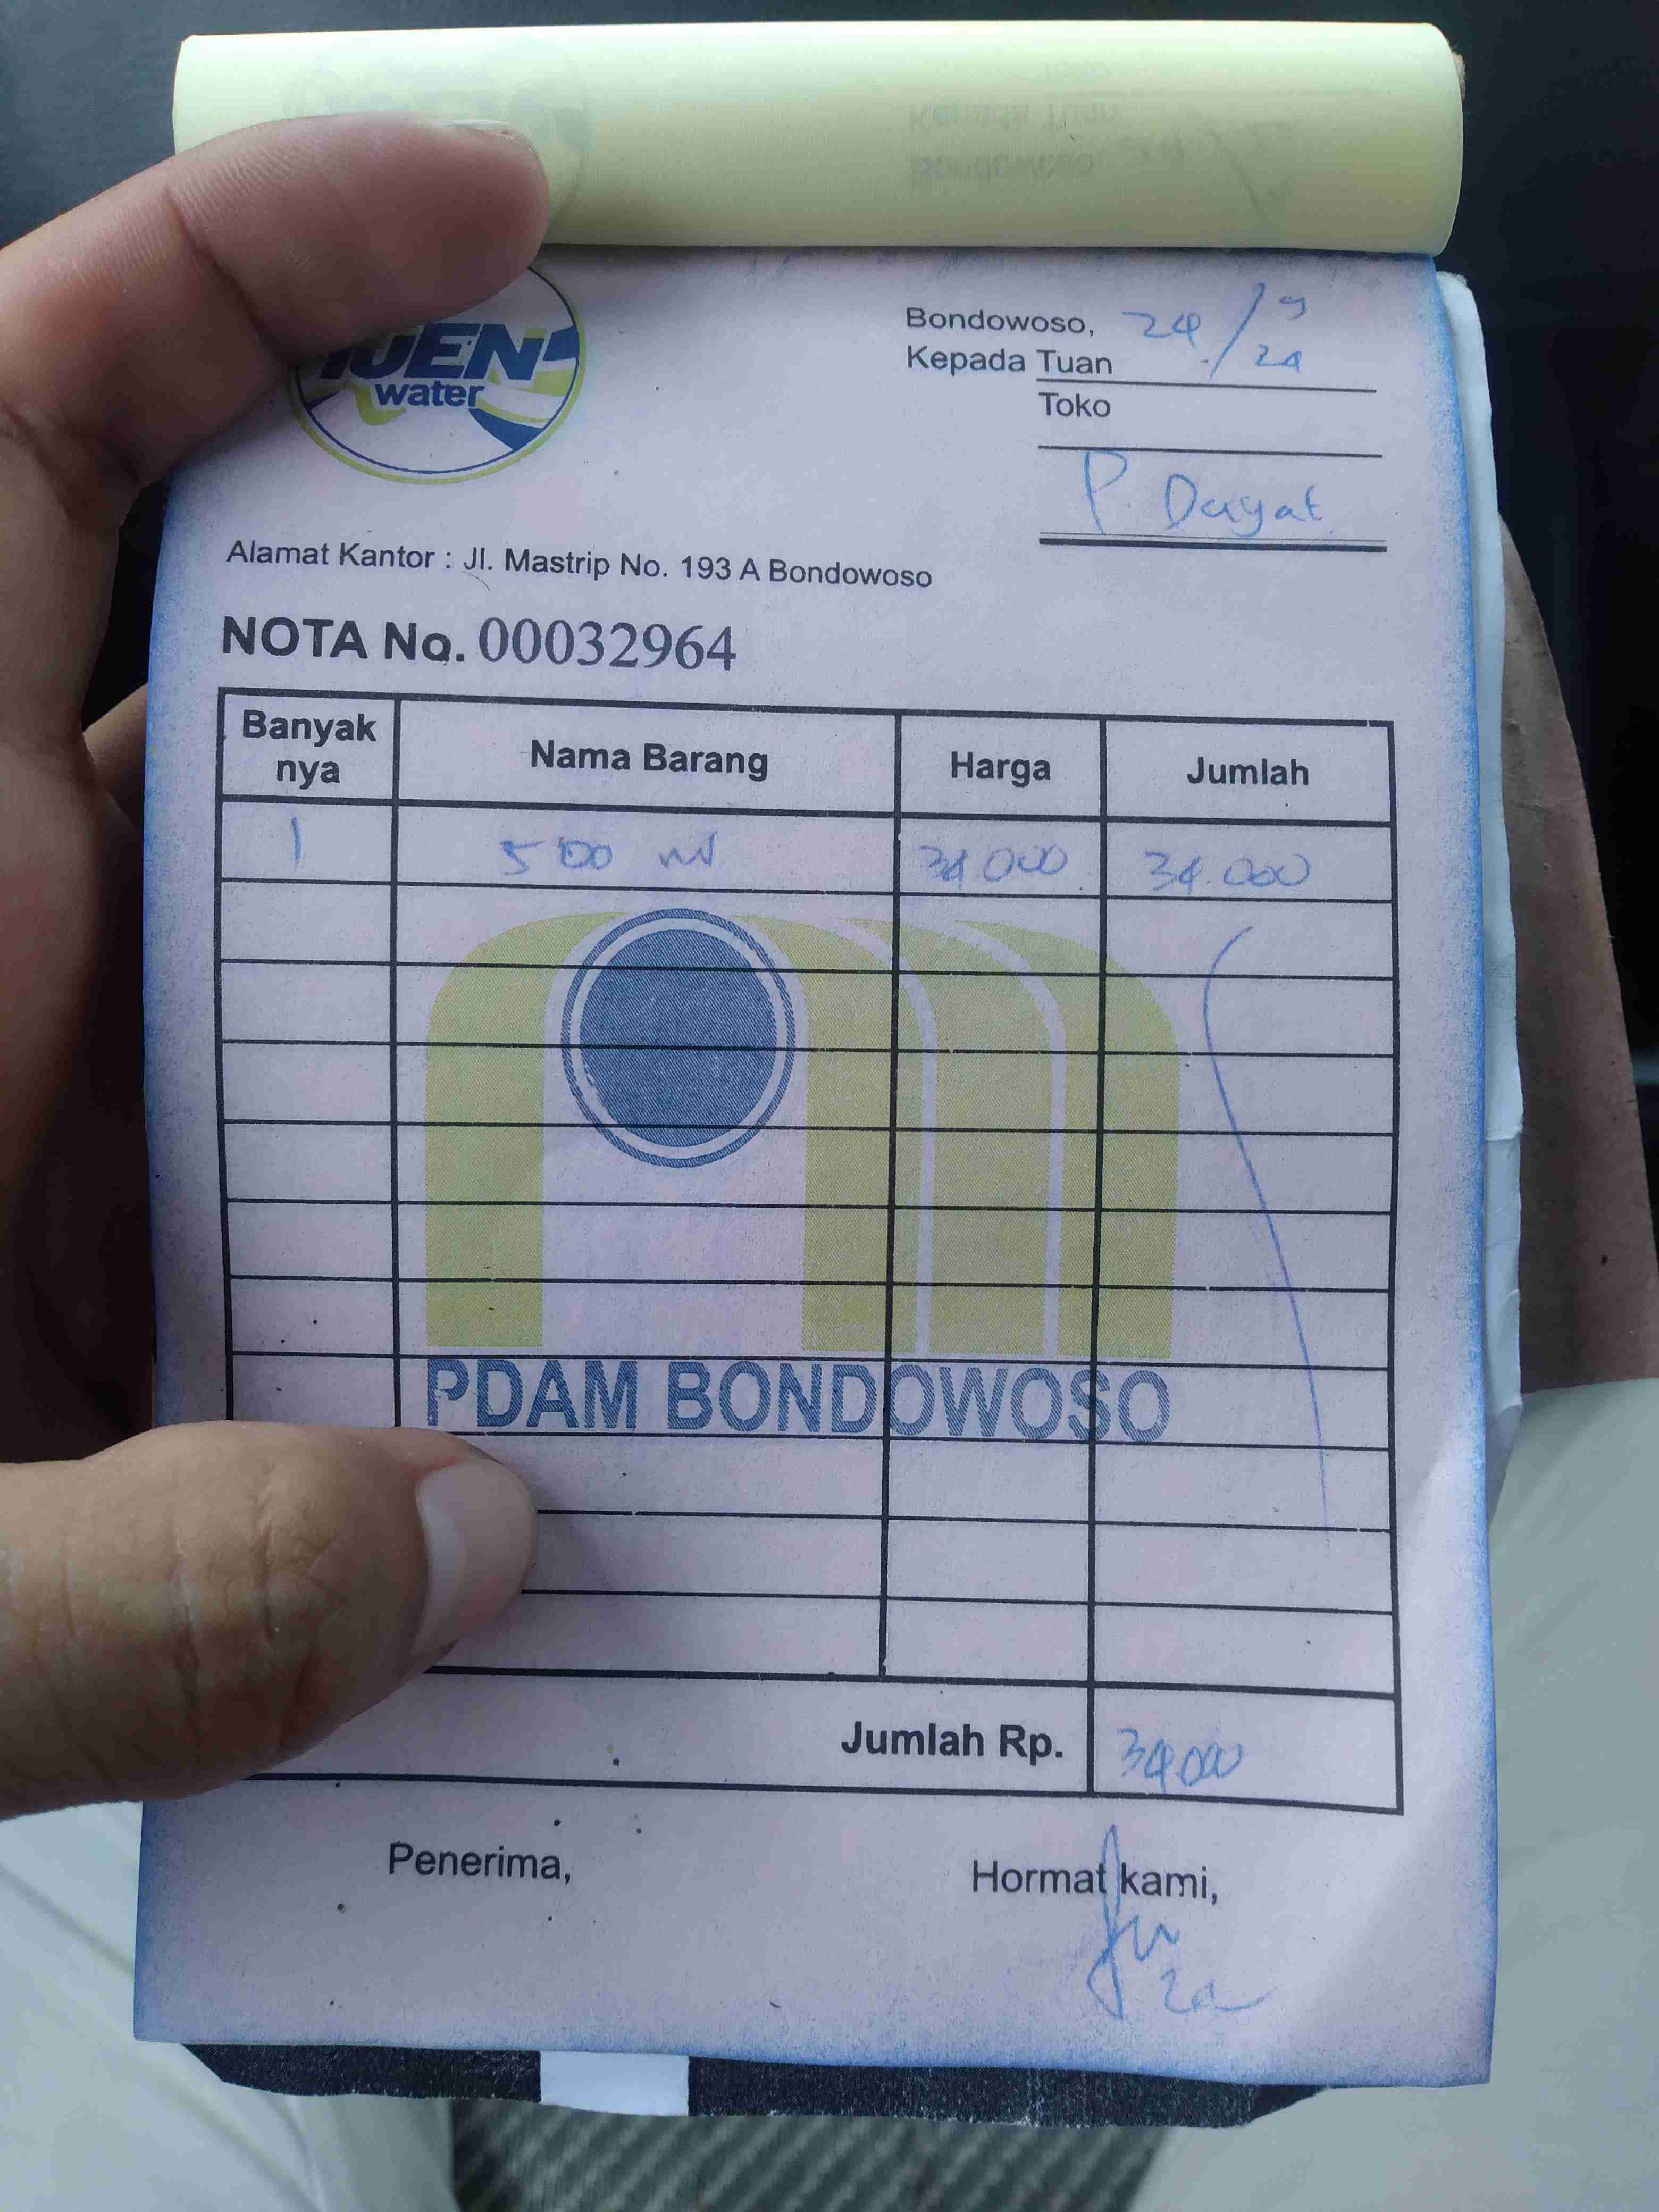 water
Bondowoso, 24/9
24
Kepada Tuan
Toko
P. Dayat
Alamat Kantor : Jl. Mastrip No. 193 A Bondowoso
NOTA No. 00032964
Banyak nya Nama Barang Harga Jumlah
1 500 ml 34.000 34.000
PDAM BONDOWOSO
Jumlah Rp. 34.000
Penerima, Hormat kami,